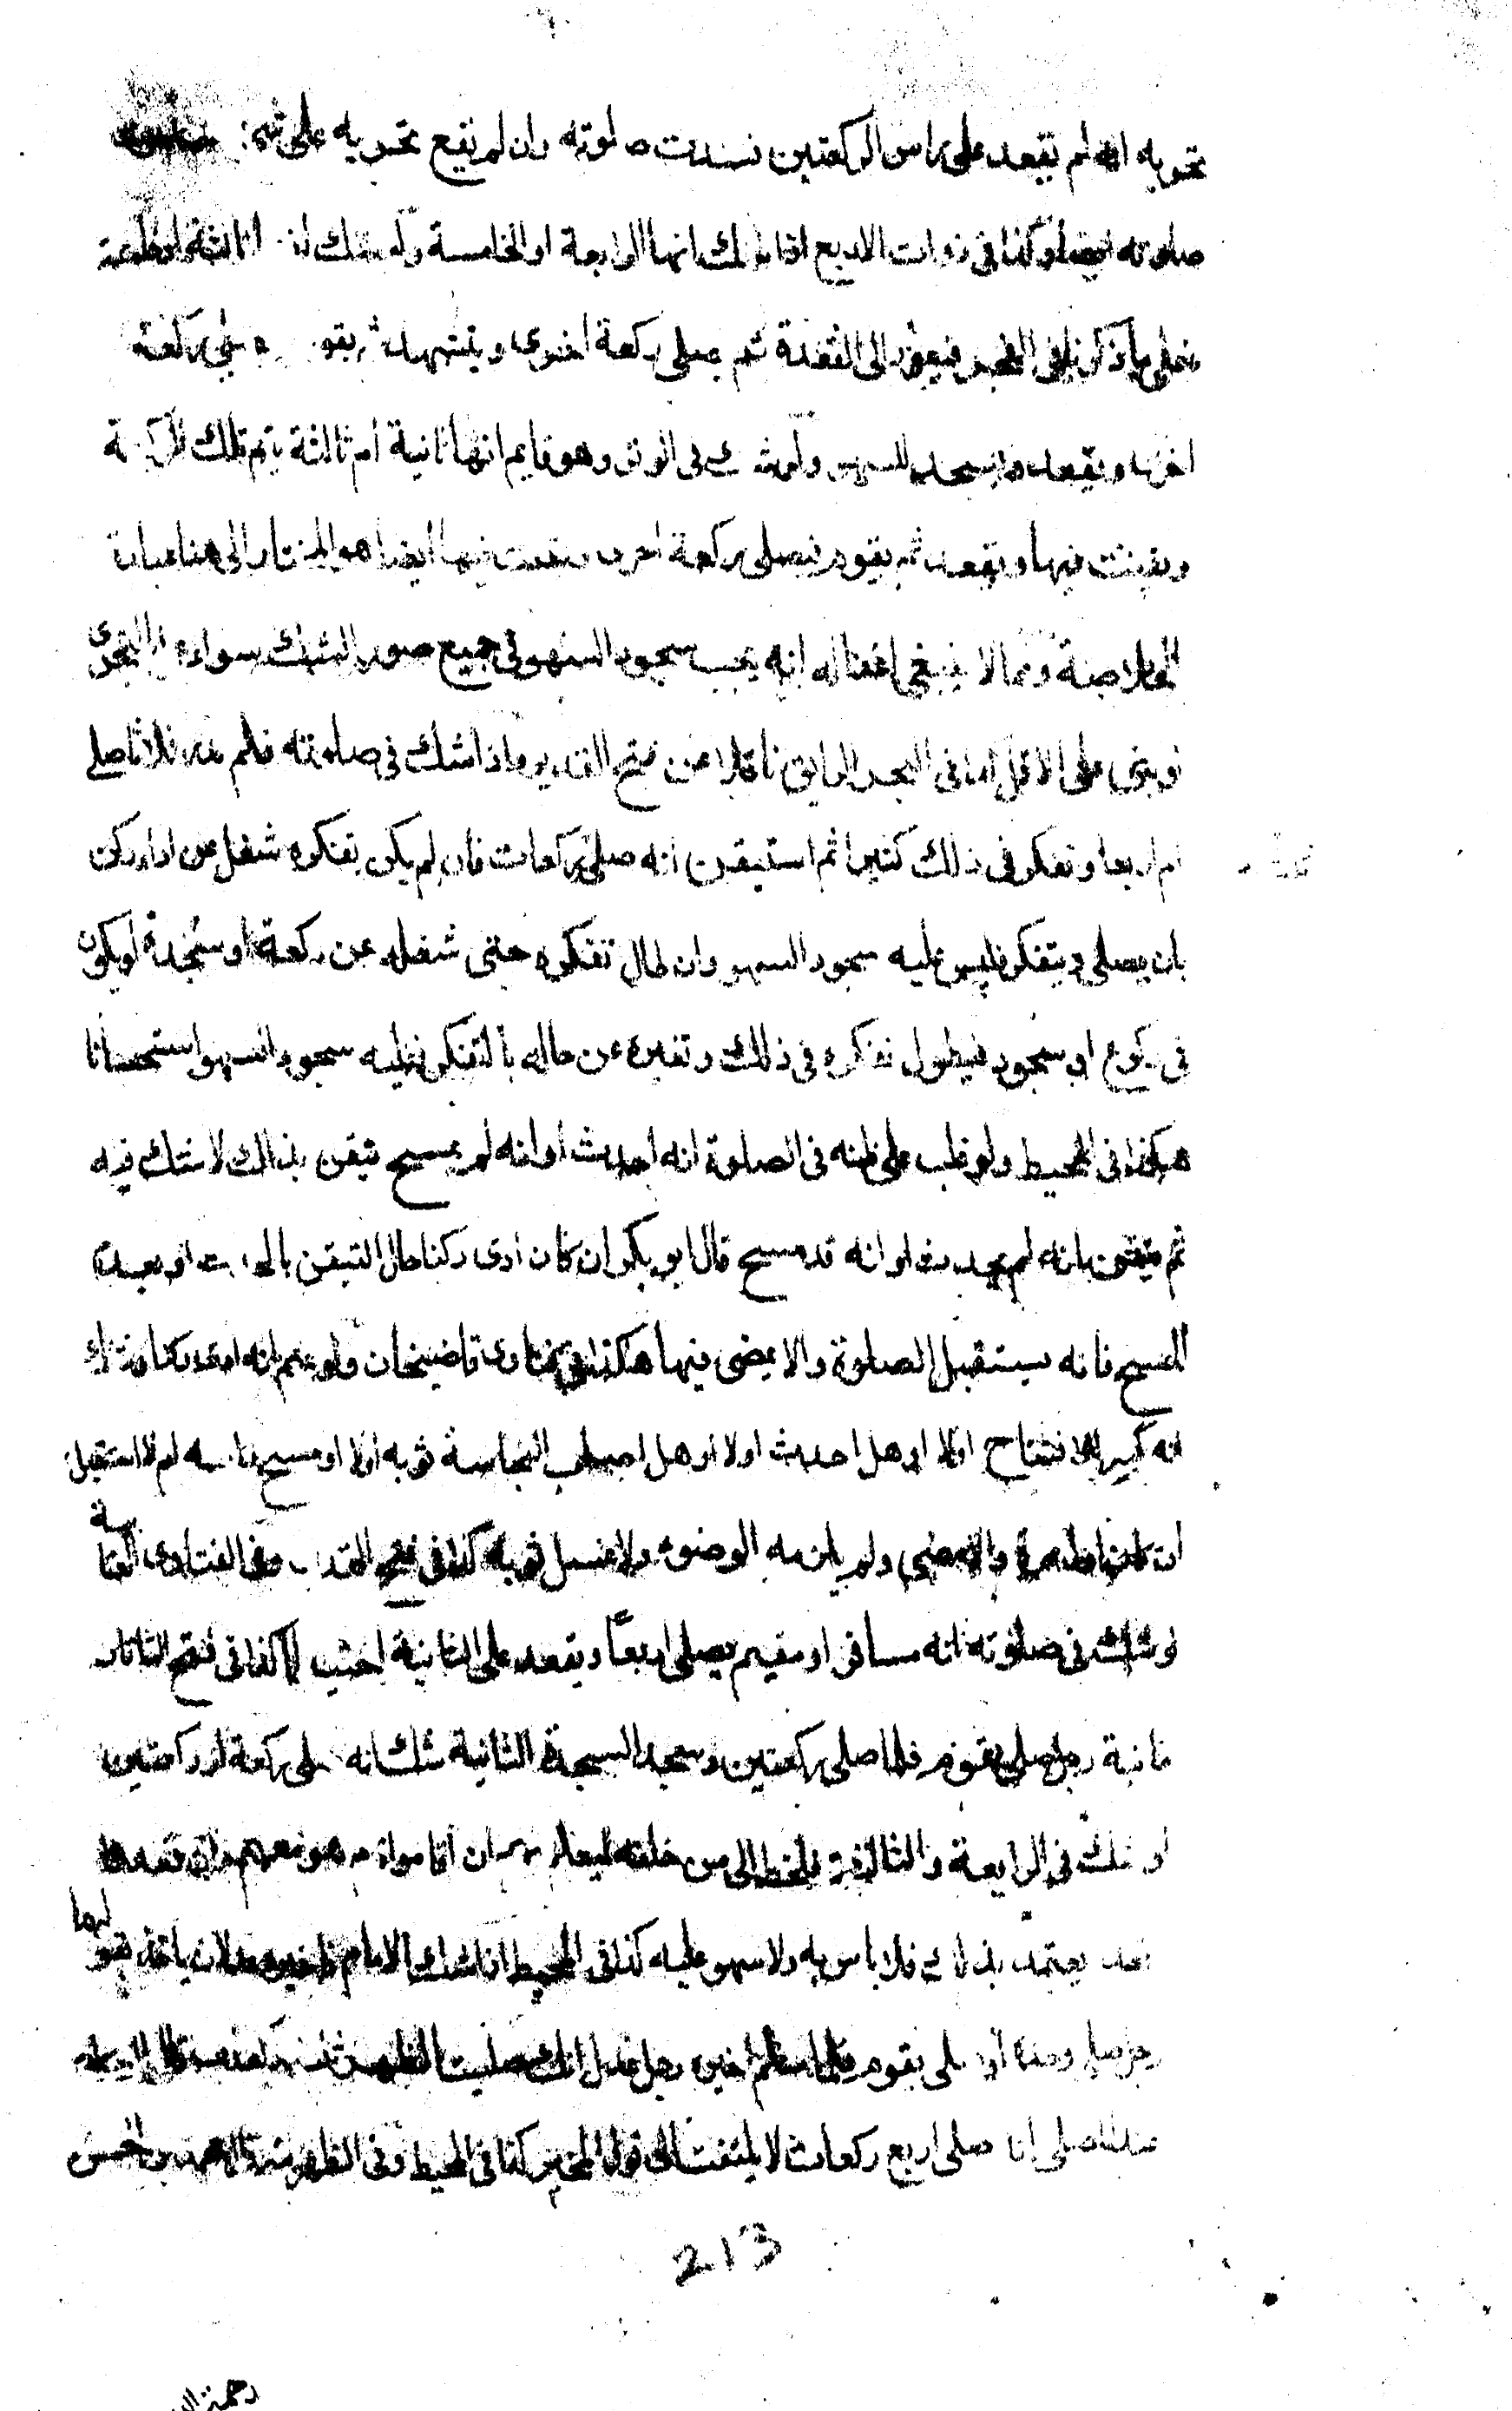 تحريه انه لم يقعد على راس الركعتين فسدت صلوته وان لم يقع تحريه على شئ
صلوته ايضا وكذا فى ذوات الاربع اذا شك انها الرابعة او الخامسة ولو شك انها ثالثة او خامسة
فعلى ما ذكرنا فى الفجر فيعود الى القعدة ثم يصلى ركعة اخرى ويتشهد ثم يقوم ركعة
اخرى ويقعد ويسجد للسهو ولو شك فى الوتر وهو قايم انها ثانية ام ثالثة يتم تلك الركعة
ويقنت فيها ويقعد ثم يقوم فيصلى ركعة اخرى ويقنت فيها ايضا هو المختار الى هنا عبارة
الخلاصة ومما لا ينبغى اغفاله انه يجب سجود السهو فى جميع صور الشك سواء بالتحرى
او بنى على الاقل كذا فى البحر الرايق ناقلا عن فتح القدير واذا شك فى صلوته فلم يدر ثلاثا صلى
ام اربعا وتفكر فى ذلك كثيرا ثم استيقن انه صلى ركعات فان لم يكن تفكره شغل عن اداء ركن
بان يصلى ويتفكر فليس عليه سجود السهو وان طال تفكره حتى شغله عن ركعة او سجدة او يكون
فى ركوع او سجود فيطول تفكره فى ذلك وتغير عن حاله بالتفكر فعليه سجود السهو استحسانا
هكذا فى المحيط ولو غلب على ظنه فى الصلوة انه احدث او انه لم يمسح تيقن بذلك لا شك فيه
ثم تيقن بانه لم يحدث او انه قد مسح قال ابو بكر ان كان ادى ركنا حال التيقن بالحدث او بعدم
المسح فانه يستقبل الصلوة والا يمضى فيها هكذا فى فتاوى قاضيخان ولو علم انه ادى ركنا وشك
انه كبر للافتتاح اولا او هل احدث اولا او هل اصاب النجاسة ثوبه اولا او مسح راسه ام لا استقبل
ان كان اول مرة والا مضى ولم يلزمه الوضوء ولا غسل ثوبه كذا فى فتح القدير وفى الفتاوى العتابية
لو شك فى صلوته انه مسافر او مقيم يصلى اربعا ويقعد على الثانية احتياطا كذا فى فتح التاتار
خانية رجل صلى بقوم فلما صلى ركعتين وسجد السجدة الثانية شك انه صلى ركعة او ركعتين
او شك فى الرابعة والثالثة فلحظ الى من خلفه ليعلم بهم ان قاموا قام هو معهم وان قعدوا
قعد يعتمد بذلك فلا باس به ولا سهو عليه كذا فى المحيط اذا شك الامام فاخبره عدلان ياخذ بقولهما
رجل صلى وحده او صلى بقوم فلما سلم اخبره رجل عدل انك صليت الظهر ثلث ركعات قالوا ان كان
عند المصلى انه صلى اربع ركعات لا يلتفت الى قول المخبر كذا فى المحيط وفى الظهيرية قال محمد بن الحسن
213
رحمه الله